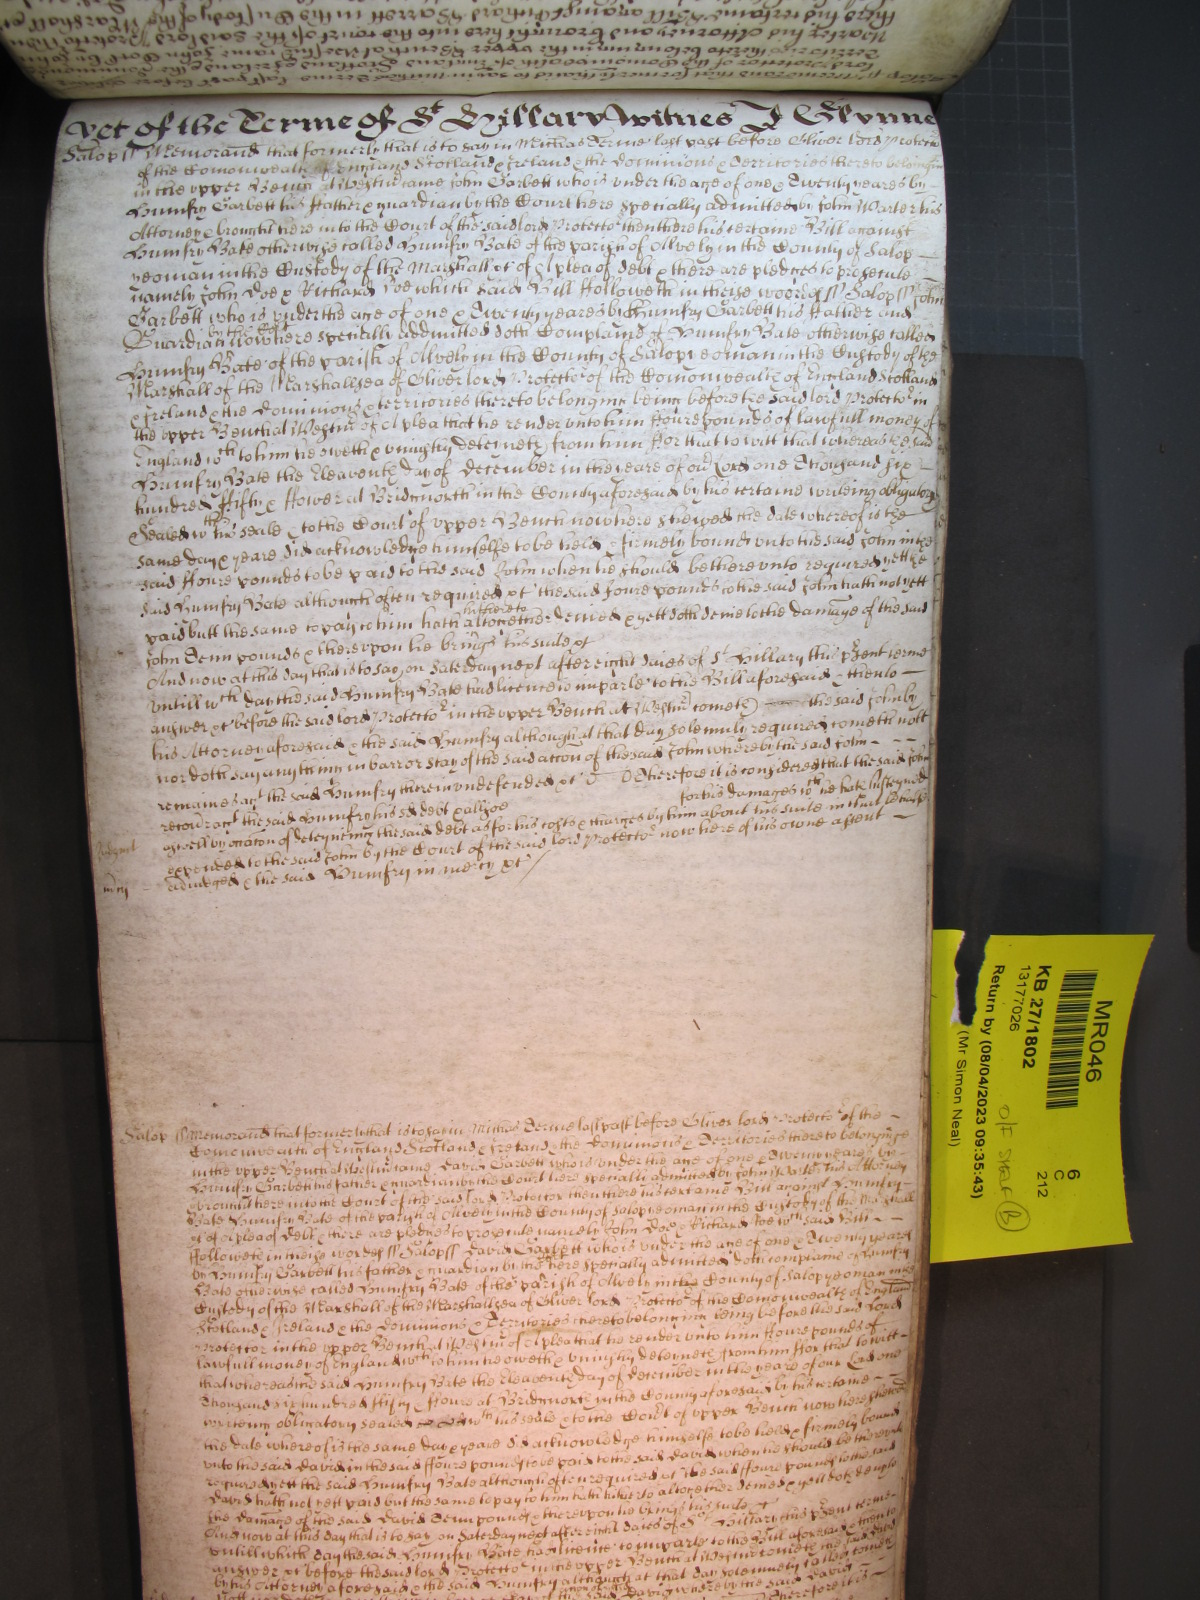 yet of the Terme of St Hillary Witnes J Glynne
Salop ss Memorand that formerly that is to say in Michas Terme last past before Oliver Lord Protector
of the Comonwealth of England Scotland & Ireland & the Dominions & Territories thereto belonging
in the upper Bench at Westmr came John Garbett who is under the age of one & Twenty yeares by
Humfry Garbett his Father & guardian by the Court here specially admitted by John Warter his
Attorney & brought here into the Court of the said lord Protector then there his certaine Bill against
Humfry Bate otherwise called Humfry Bate of the parish of Alvely in the County of Salop
yeoman in the Custody of the Marshall &c of A plea of debt & there are pledges to prosecute
namely John Doe & Richard Roe which said Bill Followeth in theise words ss Salop ss John
Garbett who is under the age of one & Twenty yeares by Humfry Garbett his Father and
Guardian by the Court now here specially addmitted doth Complaine of Humfry Bate otherwise called
Humfry Bate of the parish of Alvely in the County of Salop yeoman in the Custody of the
Marshall of the Marshallsea of Oliver lord Protector of the Comonwealth of England Scotland
& Ireland & the Dominions & territories thereto belonging being before the said lord Protector in
the upper Bench at Westmr of A plea that he render unto him Foure pounds of lawfull money of
England wch to him he oweth & uniustly deteineth from him For that to witt that whereas the said
Humfry Bate the Eleaventh day of December in the yeare of our Lord one Thousand six
hundred Fifty & Fower at Bridgnorth in the County aforesaid by his certaine writing obligatory
Sealed wth his seale & to the Court of upper Bench now here shewed the date whereof is the
same day & yeare did acknowledge himselfe to be held & firmely bound unto the said John in the
said Foure pounds to be paid to the said John when he should be thereunto required yett the
said Humfry Bate although often required &c the said foure pounds to the said John hath not yett
paid butt the same to pay to him hath hitherto altogether denied & yett doth denie to the damage of the said
John Tenn pounds & thereupon he brings his suite &c
And now at this day that is to say on Saturday next after eight daies of St Hillary this present terme
untill wch day the said Humfry Bate had licence to imparle to the Bill aforesaid & then to
answer &c before the said lord Protector in the upper Bench at Westmr cometh the said John by
his Attorney aforesaid & the said Humfry although at that day solemnly required cometh nott
nor doth say any thing in barr or stay of the said action of the said John whereby the said John
remaines agt the said Humfry therein undefended &c Therefore it is considered that the said John
recover agt the said Humfry his sd debt & allsoe for his damages wch he hath susteyned
aswell by occasion of deteyneing the said debt as for his costs & charges by him about his suite in that behalfe
expended to the said John by the Court of the said lord Protector now here of his owne assent
adiudged & the said Humfry in mercy &c
Judgmt
mcy
Salop ss Memorand that formerly that is to say in Michas Terme last past before Oliver lord Protector of the
Comonwealth of England Scotland & Ireland & the Dominions & Territories thereto belonginge
in the upper Bench at Westmr came David Garbett who is under the age of one & Twenty yeares by
Humfry Garbett his father & guardian by the Court here specially admitted by John Warter his Attorney
& brought here into the Court of the said lord Protector then there his certaine Bill against Humfry
Bate Humfry Bate of the parish of Alvely in the County of Salop yeoman in the Custody of the Marshall
&c of A plea of Debt & there are pledges to prosecute namely John Doe & Richard Roe wch said Bill
Followeth in theise words ss Salop ss David Garbett who is under the age of one & Twenty yeares
by Humfry Garbett his father & guardian by the here specially admitted doth complaine of Humfry
Bate otherwise called Humfry Bate of the parish of Alvely in the County of Salop yeoman in the
Custody of the Marshall of the Marshallsea of Oliver lord Protector of the Comonwealth of England
Scotland & Ireland & the Dominions & Territories thereto belonging being before the said Lord
Protector in the upper Bench at Westmr of A plea that he render unto him Foure pounds of
lawfull money of England wch to him he oweth & uniustly deteineth from him For that to witt
that whereas the said Humfry Bate the Eleaventh day of December in the yeare of our Lord one
Thousand six hundred Fifty & Foure at Bridgnorth in the County aforesaid by his certaine
writeing obligatory sealed wth his seale & to the Court of upper Bench now here shewed
the date whereof is the same day & yeare did acknowledge himselfe to be held & firmely bound
unto the said David in the said Foure pounds to be paid to the said David when he should be thereunto
required yett the said Humfry Bate although often required &c the said Foure pounds to the said
David hath not yett paid but the same to pay to him hath hitherto altogether denied & yett doth deny to
the damage of the said David Tenn pounds & thereupon he brings his suite &c
And now at this day that is to say on Saturday next after eight daies of St Hillary this present terme
untill which day the said Humfry Bate had licence to imparle to the Bill aforesaid & then to
answer &c before the said lord Protector in the upper Bench at Westmr cometh the said David
by his Attorney aforesaid & the said Humfry although at that day solemnely called cometh
MR046
6
C
212
KB 27/1802
13177026
O/F Shelf B
Return by (08/04/2023 09:35:43)
(Mr Simon Neal)